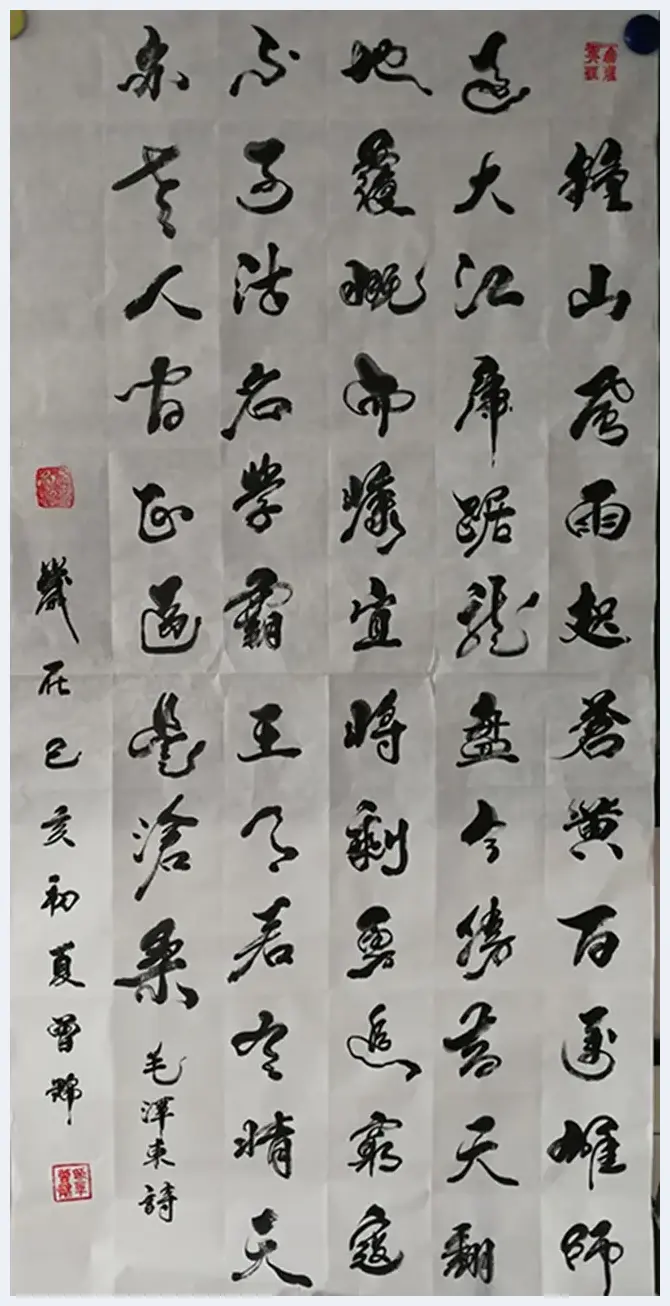 鐘山風雨起蒼黃百萬雄師
過大江虎踞龍盤今勝昔天翻
地覆慨而慷宜將剩勇追窮寇
不可沽名學霸王天若有情天
亦老人間正道是滄桑 毛澤東詩
歲在己亥初夏曾錦